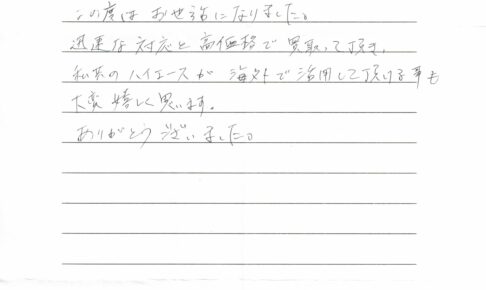 この度はお世話になりました。
迅速な対応と高価格で買取って頂き、
私共のハイエースが海外で活用して頂ける事も
大変嬉しく思います。
ありがとうございました。